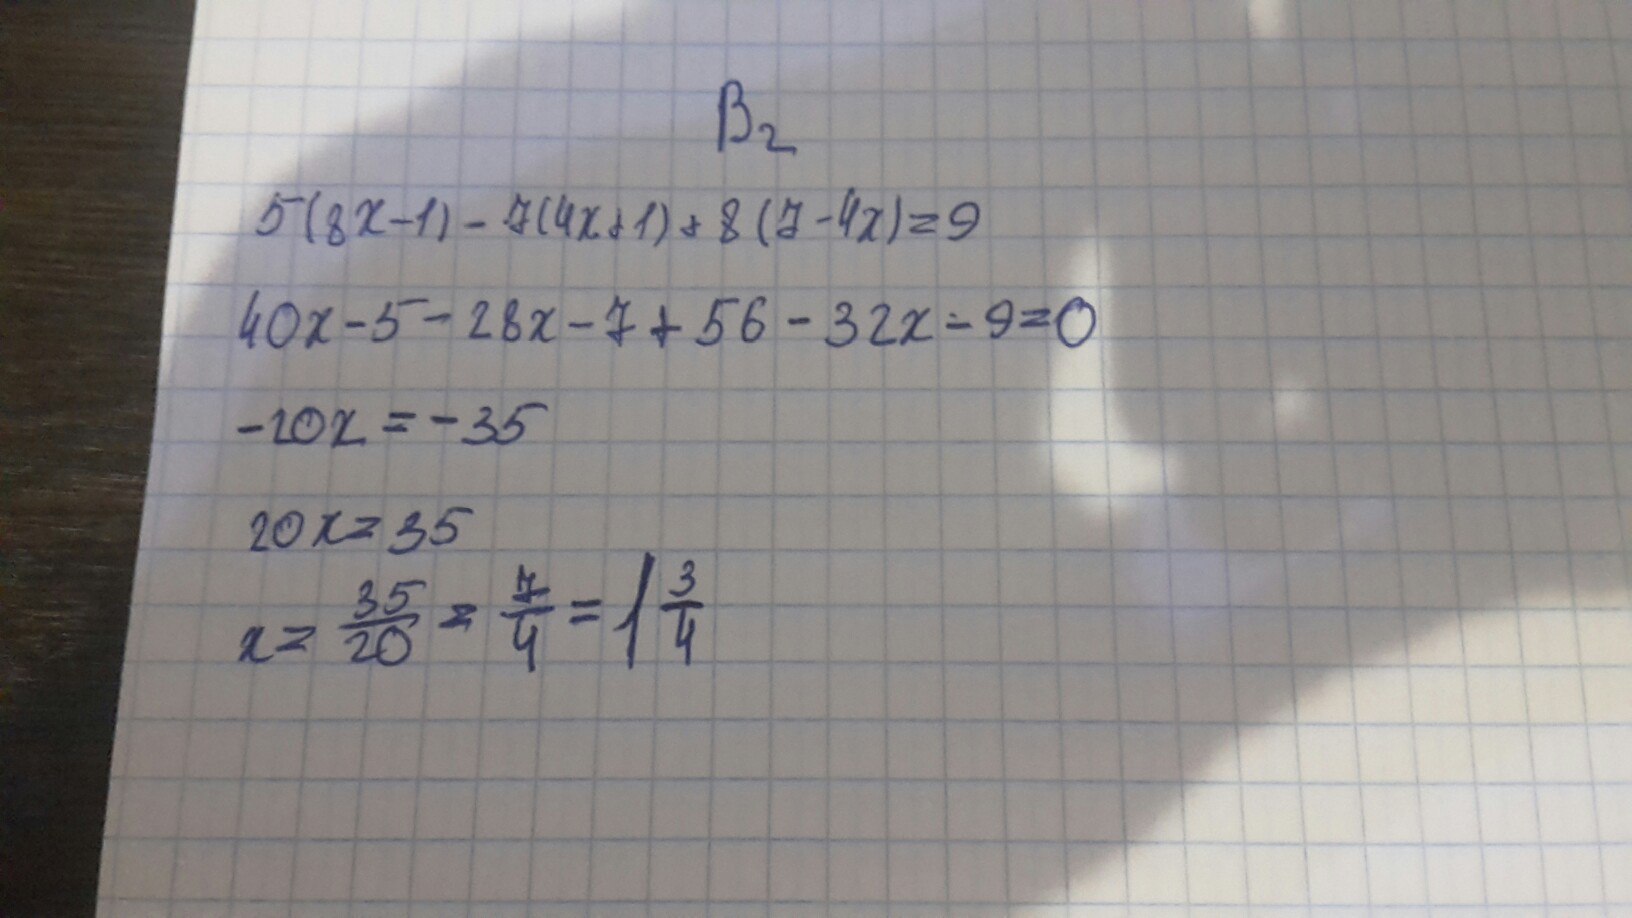 В₂
5(8x-1)-7(4x+1)+8(7-4x)=9
40x-5-28x-7+56-32x-9=0
-20x=-35
20x=35
x=35/20=7/4=1 3/4